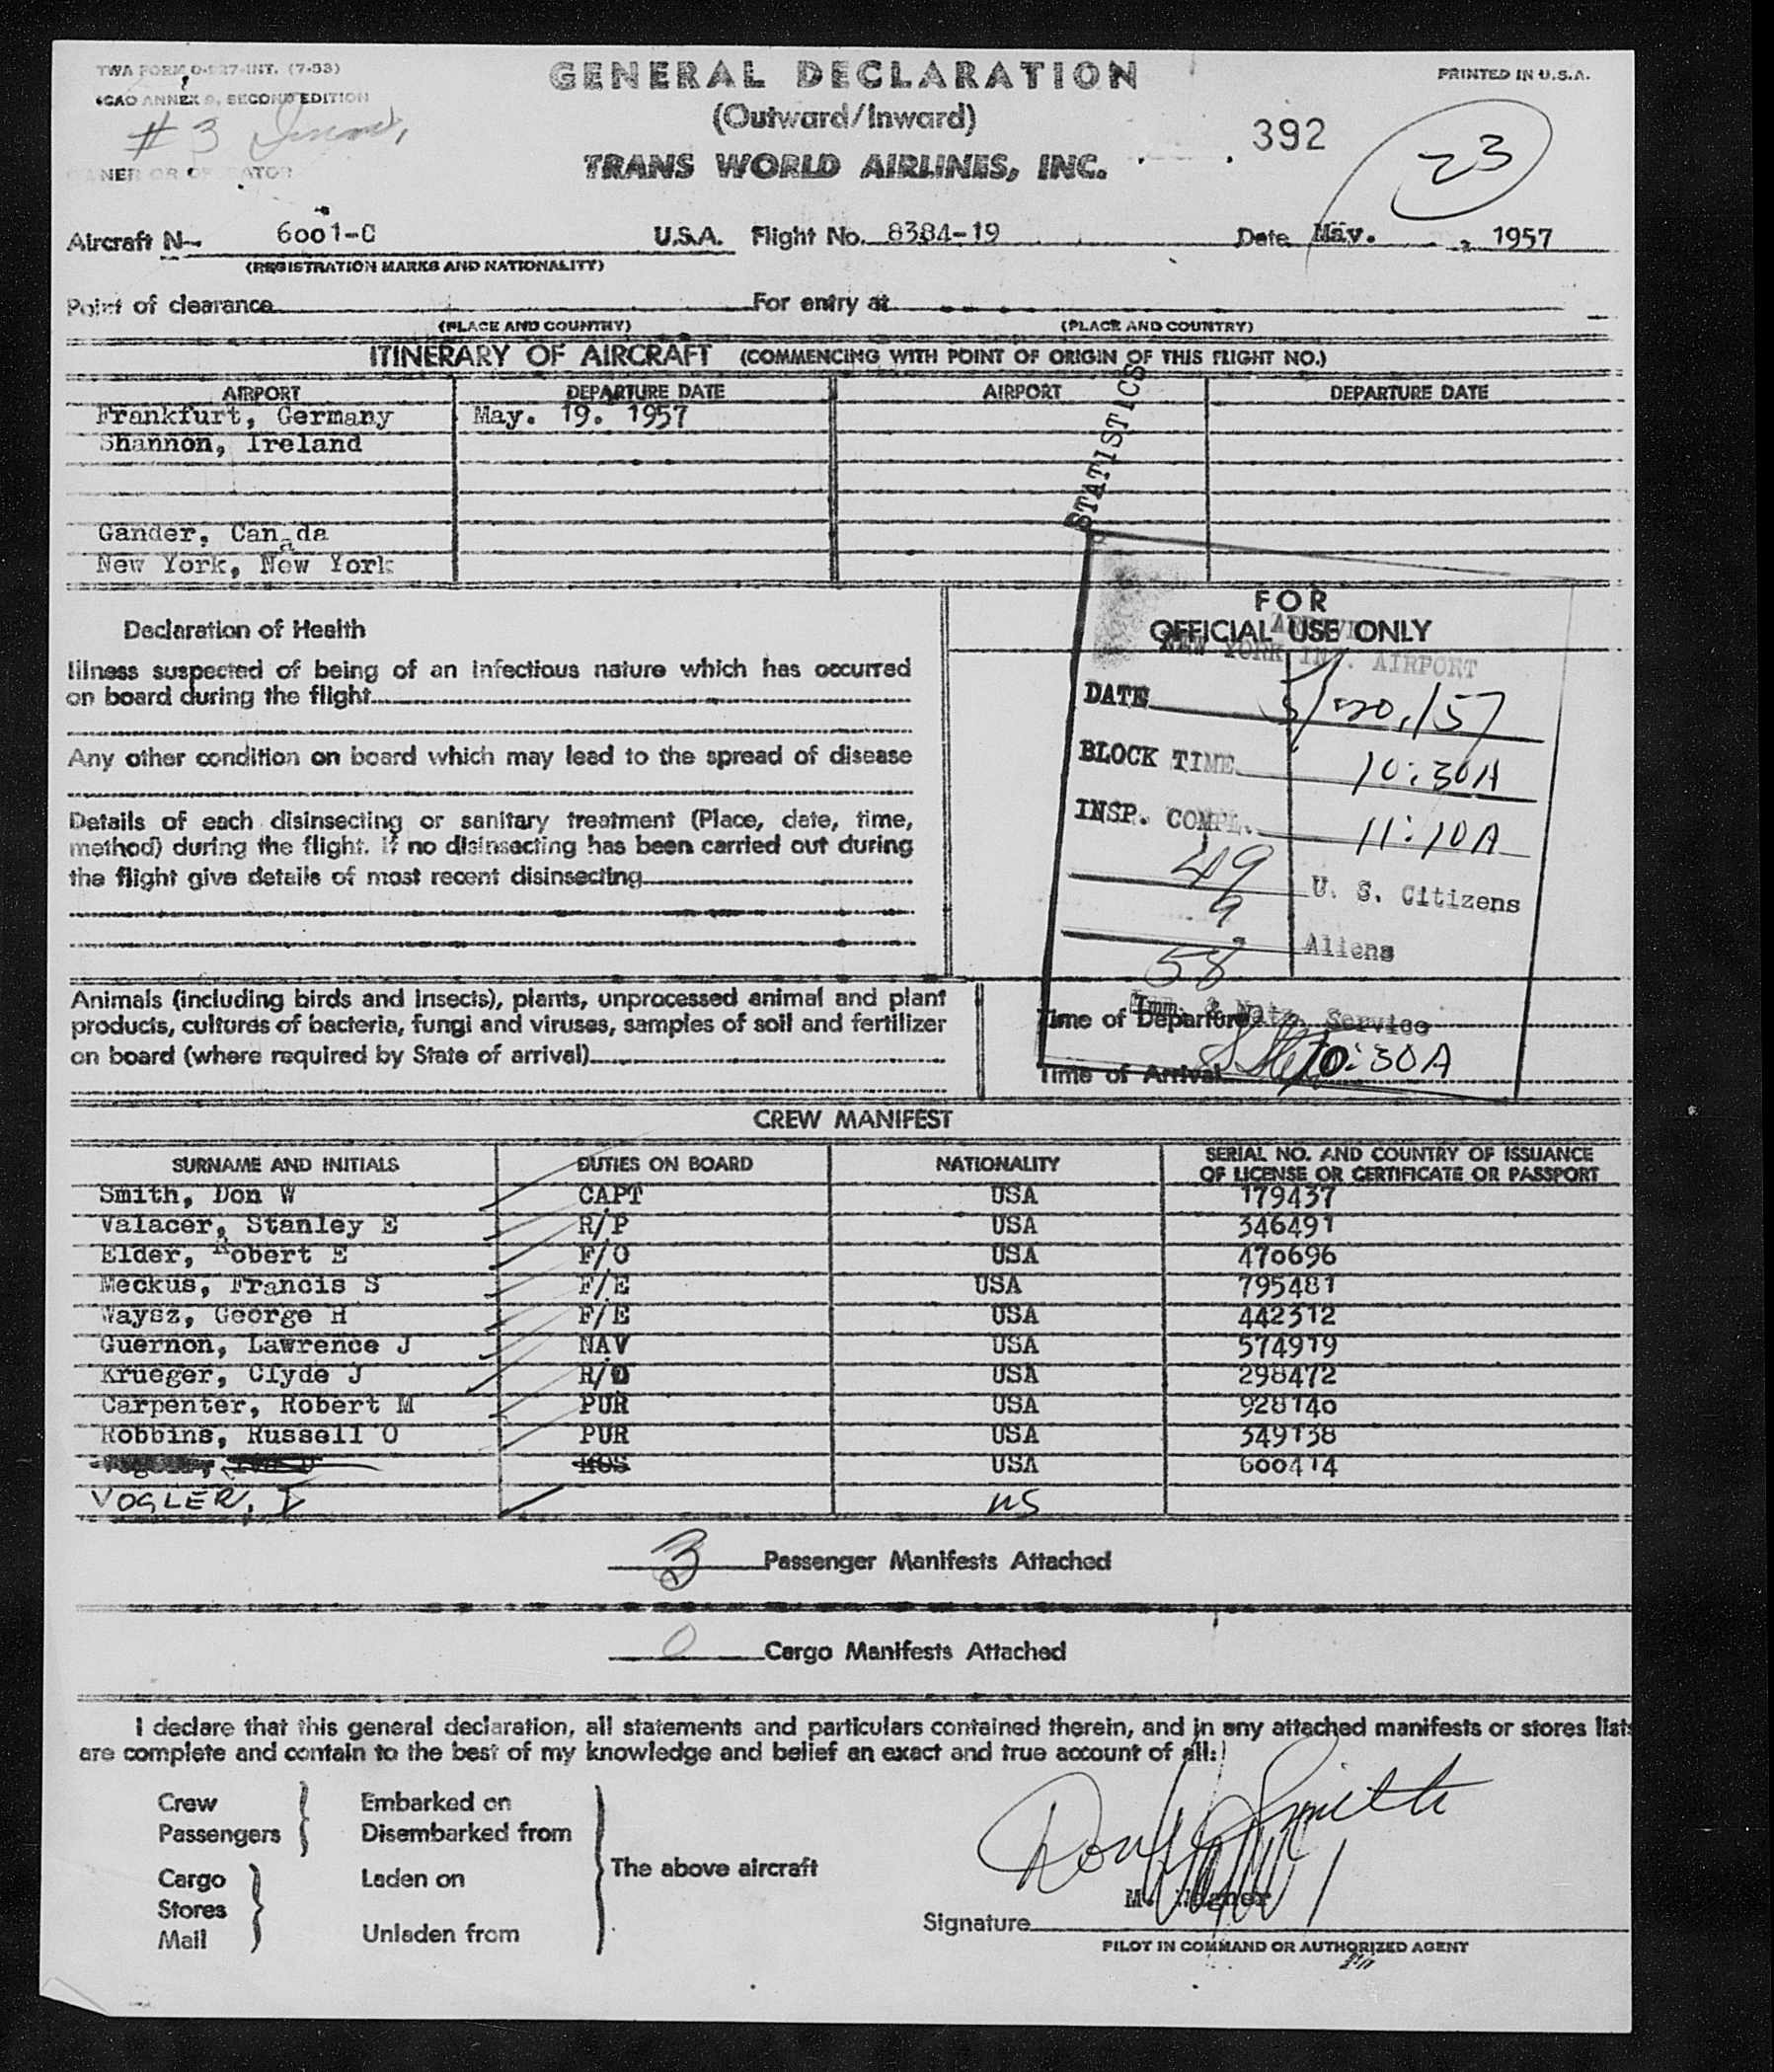 TWA FORM O-227-INT. (7-53)
GENERAL DECLARATION
PRINTED IN U.S.A.
ICAO ANNEX 9, SECOND EDITION
(Outward/Inward)
# 3
392
23
OWNER OR OPERATOR
TRANS WORLD AIRLINES, INC.
Aircraft N- 6001-C U.S.A. Flight No. 8384-19 Date May. , 1957
(REGISTRATION MARKS AND NATIONALITY)
Point of clearance For entry at
(PLACE AND COUNTRY) (PLACE AND COUNTRY)
ITINERARY OF AIRCRAFT (COMMENCING WITH POINT OF ORIGIN OF THIS FLIGHT NO.)
AIRPORT DEPARTURE DATE AIRPORT DEPARTURE DATE
Frankfurt, Germany May. 19. 1957
Shannon, Ireland
Gander, Canada
New York, New York
STATISTICS
FOR
OFFICIAL USE ONLY
NEW YORK INT. AIRPORT
DATE 5/20/57
BLOCK TIME 10:30A
INSP. COMPL. 11:10A
49 U. S. Citizens
9 Aliens
58
Imm. & Natz. Service
Declaration of Health
Illness suspected of being of an infectious nature which has occurred
on board during the flight
Any other condition on board which may lead to the spread of disease
Details of each disinsecting or sanitary treatment (Place, date, time,
method) during the flight. If no disinsecting has been carried out during
the flight give details of most recent disinsecting
Animals (including birds and insects), plants, unprocessed animal and plant
products, cultures of bacteria, fungi and viruses, samples of soil and fertilizer
on board (where required by State of arrival)
Time of Departure
Time of Arrival 10:30A
CREW MANIFEST
SURNAME AND INITIALS DUTIES ON BOARD NATIONALITY SERIAL NO. AND COUNTRY OF ISSUANCE
OF LICENSE OR CERTIFICATE OR PASSPORT
Smith, Don W CAPT USA 179437
Valacer, Stanley E R/P USA 346491
Elder, Robert E F/O USA 470696
Meckus, Francis S F/E USA 795481
Waysz, George H F/E USA 442312
Guernon, Lawrence J NAV USA 574919
Krueger, Clyde J R/O USA 298472
Carpenter, Robert M PUR USA 928140
Robbins, Russell O PUR USA 349138
HOS USA 600414
VOGLER, I US
3 Passenger Manifests Attached
0 Cargo Manifests Attached
I declare that this general declaration, all statements and particulars contained therein, and in any attached manifests or stores lists
are complete and contain to the best of my knowledge and belief an exact and true account of all:
Crew
Passengers
Embarked on
Disembarked from
Cargo
Stores
Mail
Laden on
Unladen from
The above aircraft
Don W Smith
M. Wagner
Signature
PILOT IN COMMAND OR AUTHORIZED AGENT